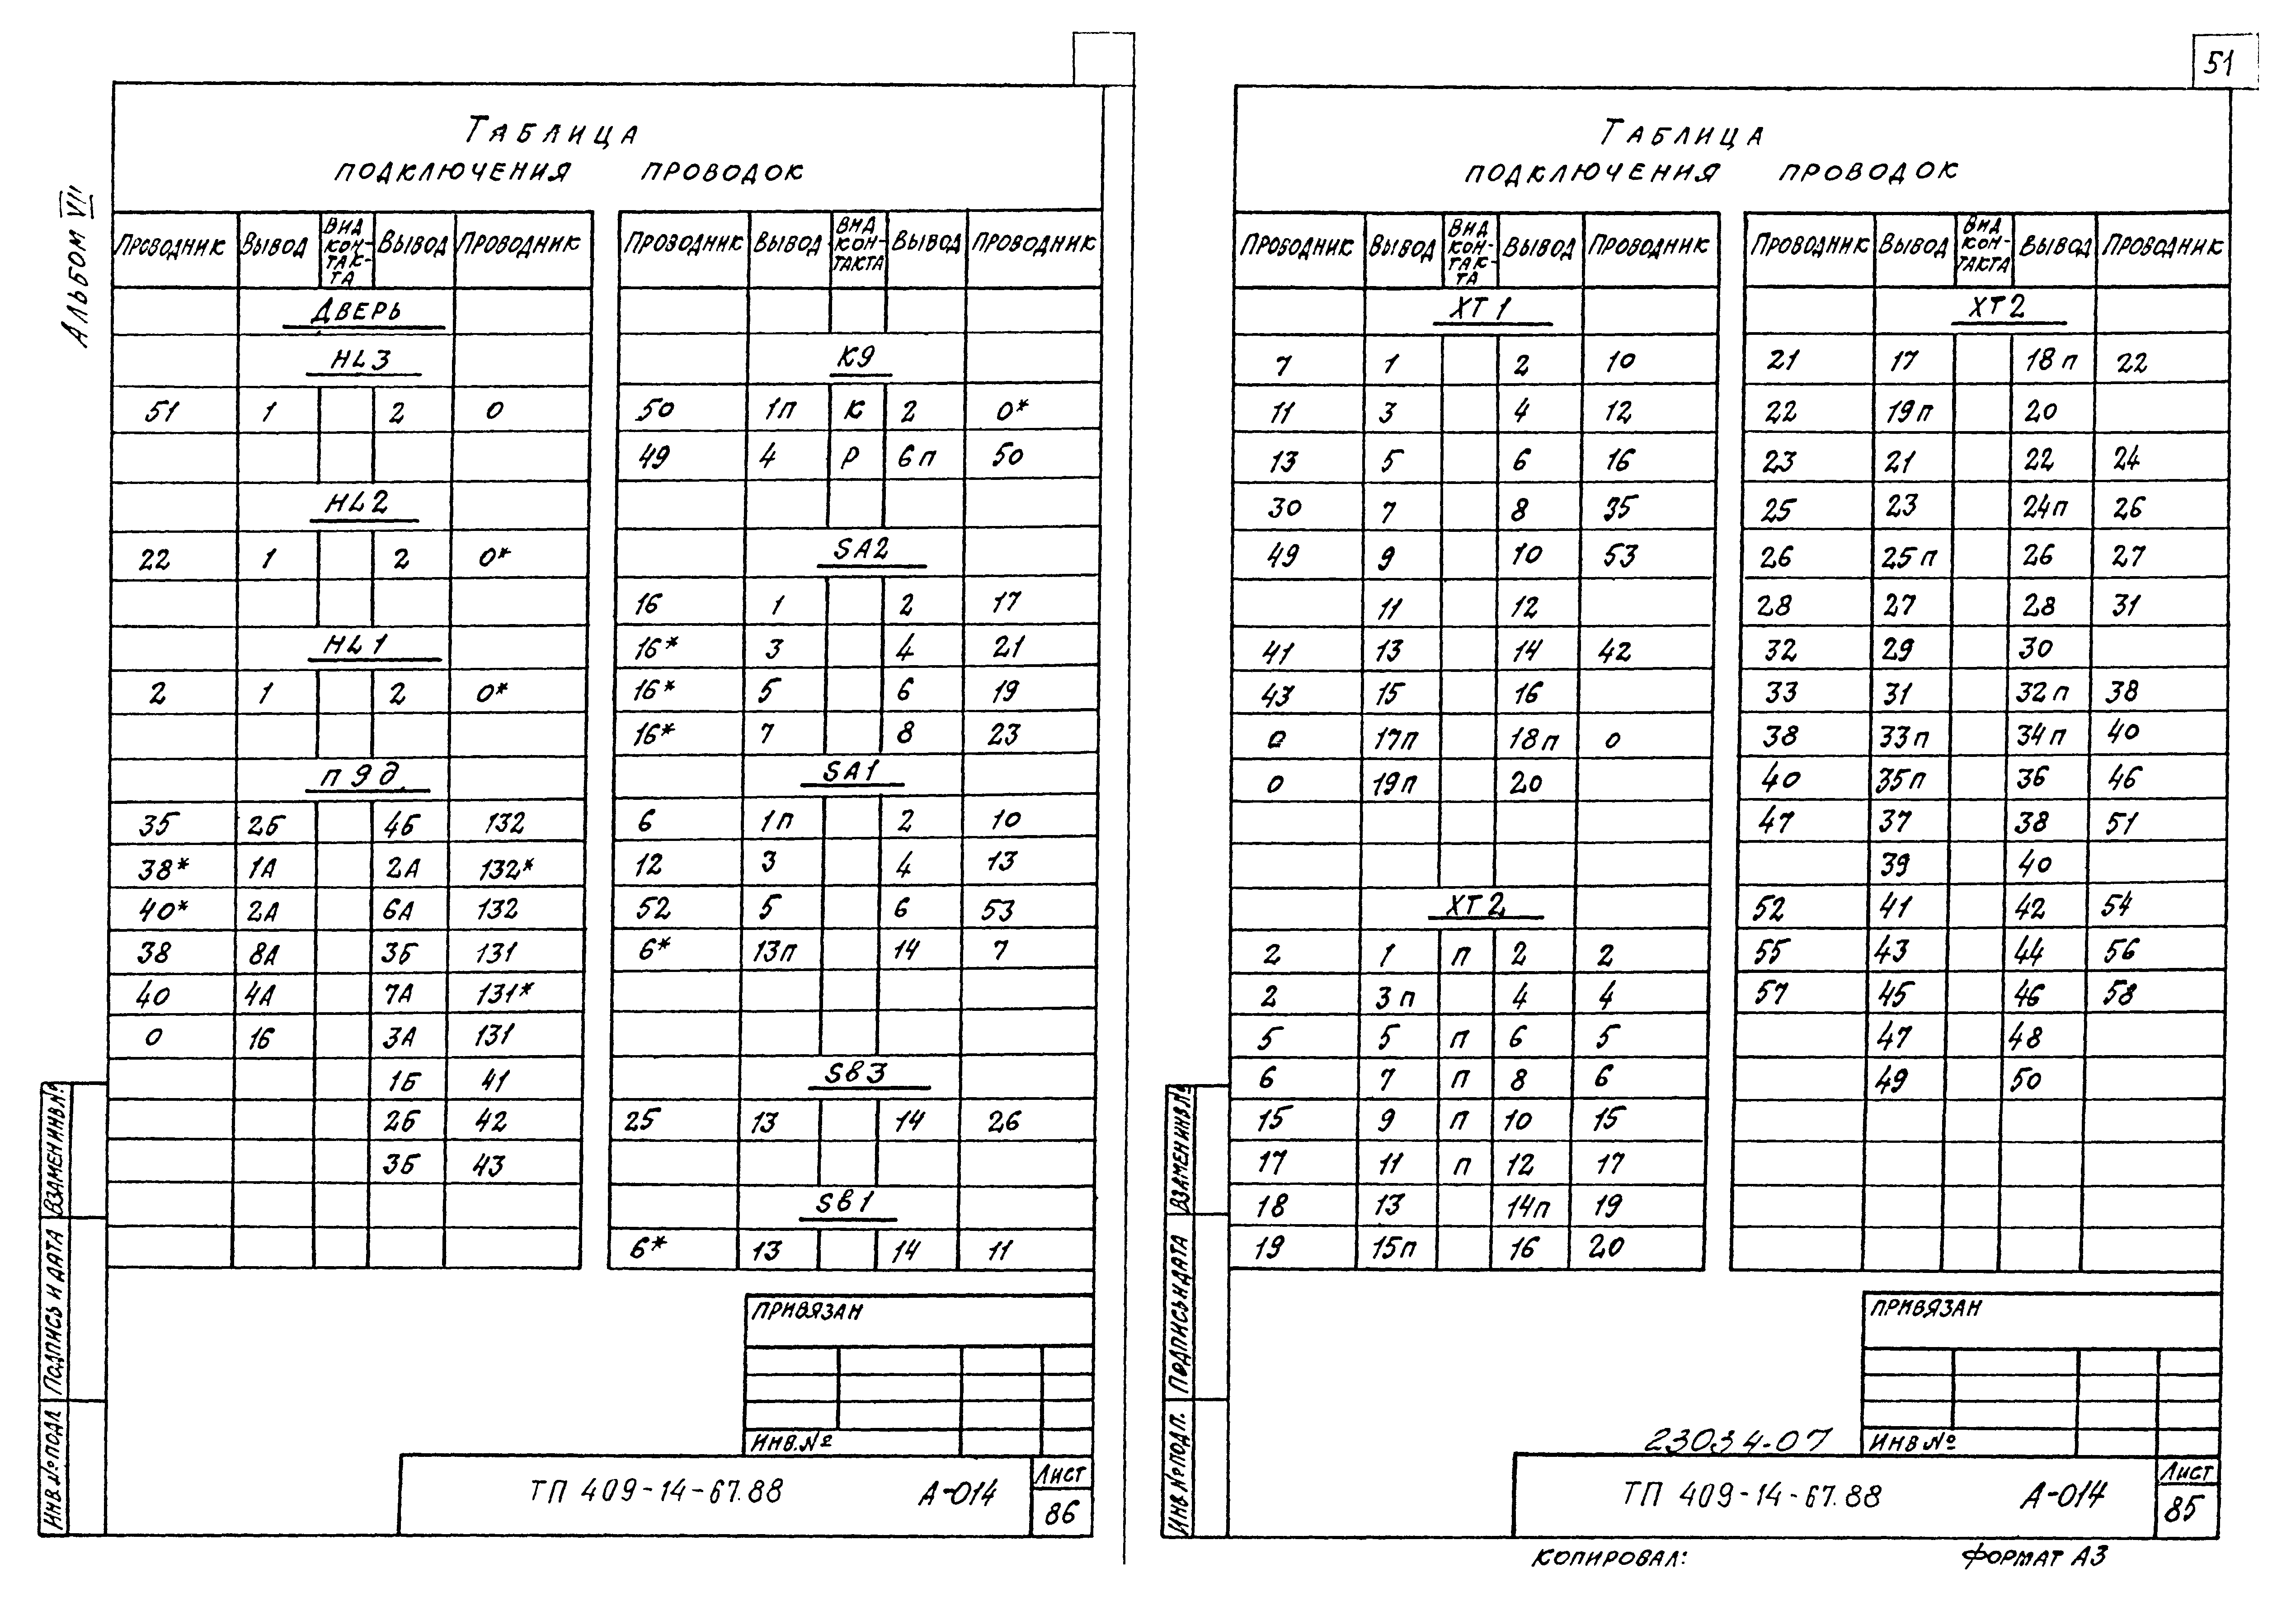 51
Альбом VII
Таблица
подключения проводок
Проводник Вывод Вид кон-так-та Вывод Проводник
Дверь
HL3
51 1 2 0
HL2
22 1 2 0*
HL1
2 1 2 0*
ПЭД
35 2Б 4Б 132
38* 1А 2А 132*
40* 2А 6А 132
38 8А 3Б 131
40 4А 7А 131*
0 16 3А 131
1Б 41
2Б 42
3Б 43
Проводник Вывод Вид кон-такта Вывод Проводник
К9
50 1п К 2 0*
49 4 Р 6п 50
SA2
16 1 2 17
16* 3 4 21
16* 5 6 19
16* 7 8 23
SA1
6 1п 2 10
12 3 4 13
52 5 6 53
6* 13п 14 7
SB3
25 13 14 26
SB1
6* 13 14 11
Привязан
Инв.№
ТП 409-14-67.88 А-014
Лист
86
Инв.№подл. Подпись и дата Взамен инв.№
Таблица
подключения проводок
Проводник Вывод Вид кон-так-та Вывод Проводник
XT1
7 1 2 10
11 3 4 12
13 5 6 16
30 7 8 35
49 9 10 53
11 12
41 13 14 42
43 15 16
0 17п 18п 0
0 19п 20
XT2
2 1 п 2 2
2 3п 4 4
5 5 п 6 5
6 7 п 8 6
15 9 п 10 15
17 11 п 12 17
18 13 14п 19
19 15п 16 20
Проводник Вывод Вид кон-такта Вывод Проводник
XT2
21 17 18п 22
22 19п 20
23 21 22 24
25 23 24п 26
26 25п 26 27
28 27 28 31
32 29 30
33 31 32п 38
38 33п 34п 40
40 35п 36 46
47 37 38 51
39 40
52 41 42 54
55 43 44 56
57 45 46 58
47 48
49 50
Привязан
Инв №
23034-07
ТП 409-14-67.88 А-014
Лист
85
Инв.№подп. Подпись и дата Взамен инв.№
Копировал: Формат А3